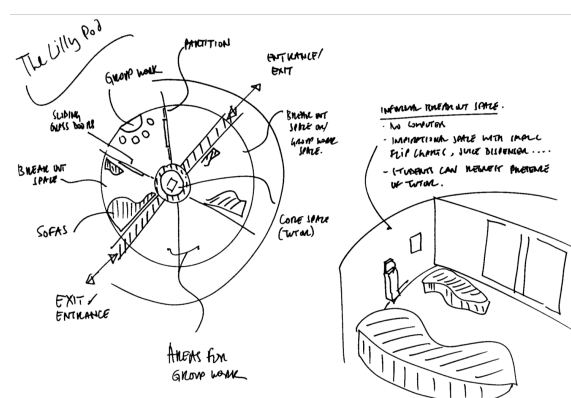 The Lilly Pod
PARTITION
GROUP WORK
ENTRANCE/
EXIT
SLIDING
GLASS DOORS
BREAK OUT
SPACE OR/
GROUP WORK
SPACE.
BREAK OUT
SPACE
SOFAS
CORE SPACE
(TUTOR)
EXIT/
ENTRANCE
AREAS FOR
GROUP WORK
INFORMAL BREAKOUT SPACE.
- NO COMPUTER
- INSPIRATIONAL SPACE WITH SMALL
FLIP CHARTS, JUICE DISPENSER....
- STUDENTS CAN REQUEST PRESENCE
OF TUTOR.